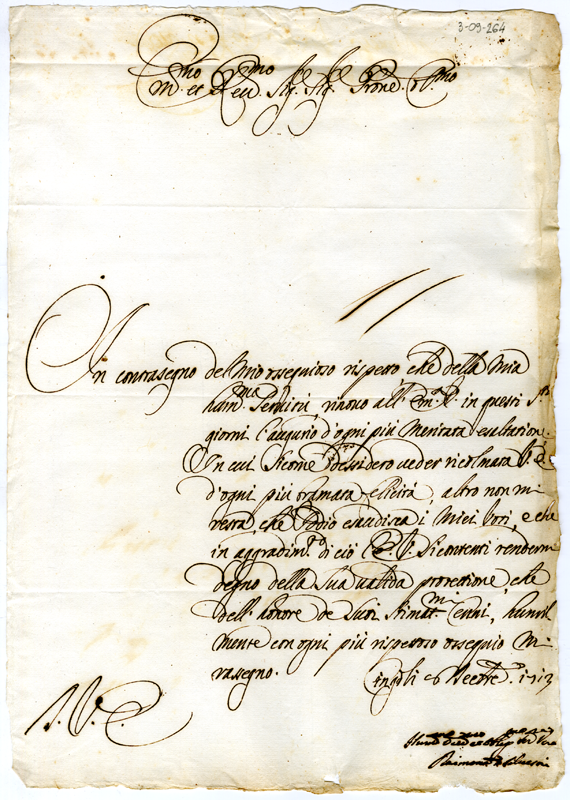 3-09-264
Em.mo
et Reu.mo Sig.r Sig.r Prone. C.mo
In contrasegno del Mio ossequioso rispetto che della Mia
hum.ma Seruitù, rinouo all' Em.a V. in questi S.ti
giorni l'augurio d'ogni più Meritata esaltatione.
In cui Sicome dessidero ueder ricolmata V. E.
d'ogni più bramata felicità, altro non mi
resta, che Iddio esaudisca i Miei Voti, e che
in aggradim.to di ciò E. V. Si contenti rendermi
degno della Sua ualida protetione, che
dell' honore de Suoi Stimat.mi Cenni, humil
mente con ogni più rispetoso ossequio Mi
rasegno.
6 Decebre 1713
S. V. E.
Raimondo